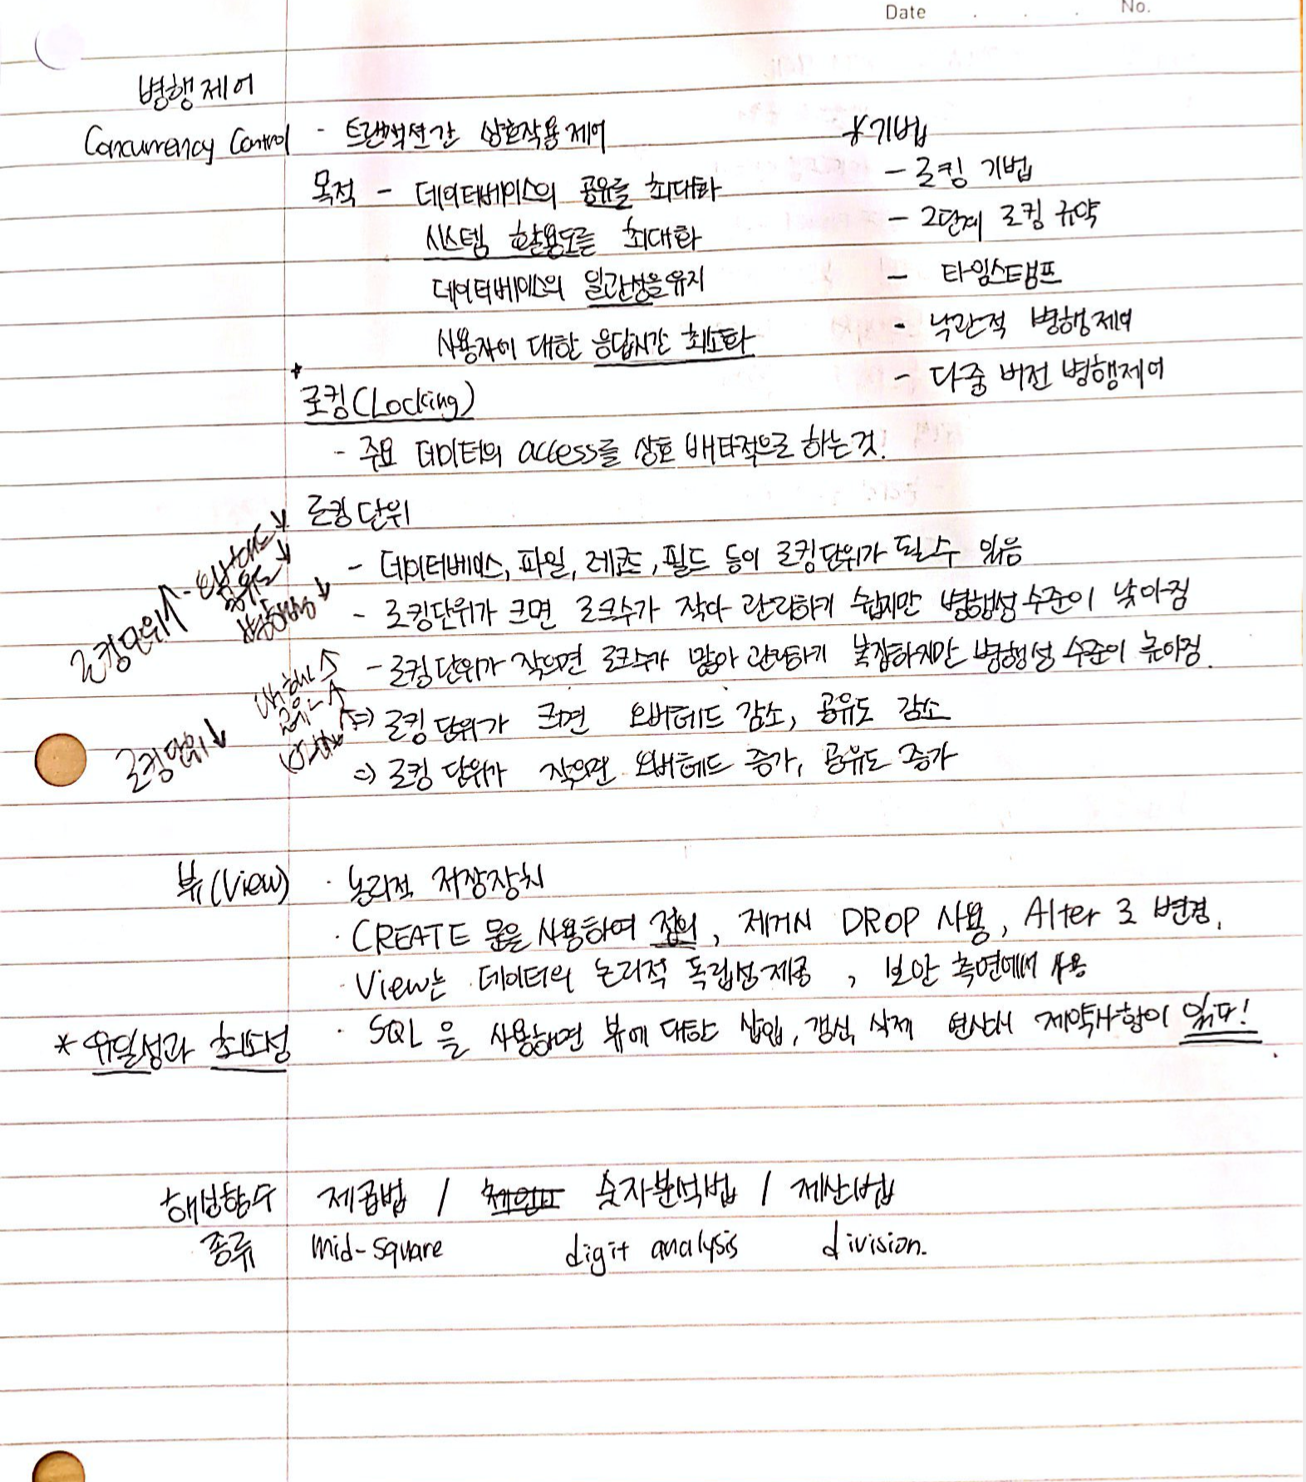 Date . . . No.
병행제어
Concurrency Control - 트랜잭션간 상호작용제어
목적 - 데이터베이스의 공유를 최대화
시스템 활용도를 최대화
데이터베이스의 일관성을유지
사용자에 대한 응답시간 최소화
*기법
- 로킹 기법
- 2단계 로킹 규약
- 타임스탬프
- 낙관적 병행제어
- 다중 버전 병행제어
* 로킹(Locking)
- 주요 데이터의 access를 상호 배타적으로 하는것.
로킹단위
- 데이터베이스, 파일, 레코드, 필드 등이 로킹단위가 될수 있음
- 로킹단위가 크면 로크수가 작아 관리하기 쉽지만 병행성 수준이 낮아짐
- 로킹단위가 작으면 로크수가 많아 관리하기 복잡하지만 병행성 수준이 높아짐.
=> 로킹 단위가 크면 오버헤드 감소, 공유도 감소
=> 로킹 단위가 작으면 오버헤드 증가, 공유도 증가
로킹단위↑ - 오버헤드↓
공유도↓
병행성↓
로킹단위↓
뷰(View) · 논리적 저장장치
· CREATE 문을 사용하여 정의, 제거시 DROP 사용, Alter 로 변경.
· View는 데이터의 논리적 독립성제공, 보안 측면에서 사용
* 유일성과 최소성
· SQL 을 사용하면 뷰에 대한 삽입, 갱신, 삭제 연산시 제약사항이 있다!
해싱함수 제곱법 / 숫자분석법 / 제산법
종류 mid-square digit analysis division.